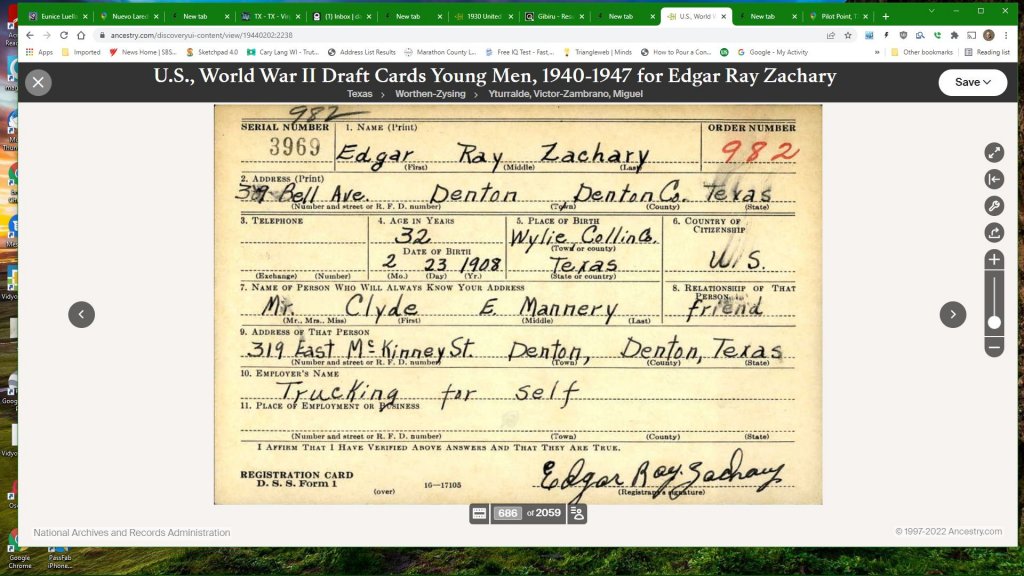 Eunice Luella
Nuevo Lared
New tab
TX - TX - Vir
(1) Inbox | d
New tab
1930 United
Gibiru - Res
New tab
U.S., World W
New tab
Pilot Point, T
ancestry.com/discoveryui-content/view/19440202:2238
Apps Imported News Home | SBS... Sketchpad 4.0 Cary Lang WI - Trut... Address List Results Marathon County L... Free IQ Test - Fast,... Triangleweb | Minds How to Pour a Con... Google - My Activity Other bookmarks Reading list
U.S., World War II Draft Cards Young Men, 1940-1947 for Edgar Ray Zachary
Save
Texas > Worthen-Zysing > Yturralde, Victor-Zambrano, Miguel
982
SERIAL NUMBER 1. NAME (Print) ORDER NUMBER
3969 Edgar Ray Zachary 982
(First) (Middle) (Last)
2. ADDRESS (Print)
Bell Ave. Denton Denton Co. Texas
(Number and street or R. F. D. number) (Town) (County) (State)
3. TELEPHONE 4. AGE IN YEARS 5. PLACE OF BIRTH 6. COUNTRY OF CITIZENSHIP
32 Wylie Collin Co.
(Town or county)
DATE OF BIRTH
2 23 1908 Texas U.S.
(Exchange) (Number) (Mo.) (Day) (Yr.) (State or country)
7. NAME OF PERSON WHO WILL ALWAYS KNOW YOUR ADDRESS 8. RELATIONSHIP OF THAT PERSON
Mr. Clyde E. Mannery friend
(Mr., Mrs., Miss) (First) (Middle) (Last)
9. ADDRESS OF THAT PERSON
319 East McKinney St. Denton, Denton, Texas
(Number and street or R. F. D. number) (Town) (County) (State)
10. EMPLOYER'S NAME
Trucking for self
11. PLACE OF EMPLOYMENT OR BUSINESS
(Number and street or R. F. D. number) (Town) (County) (State)
I AFFIRM THAT I HAVE VERIFIED ABOVE ANSWERS AND THAT THEY ARE TRUE.
REGISTRATION CARD
D. S. S. Form 1
(over) 16—17105
Edgar Ray Zachary
(Registrant's signature)
686 of 2059
National Archives and Records Administration
© 1997-2022 Ancestry.com
Google Chrome
PassFab iPhone...